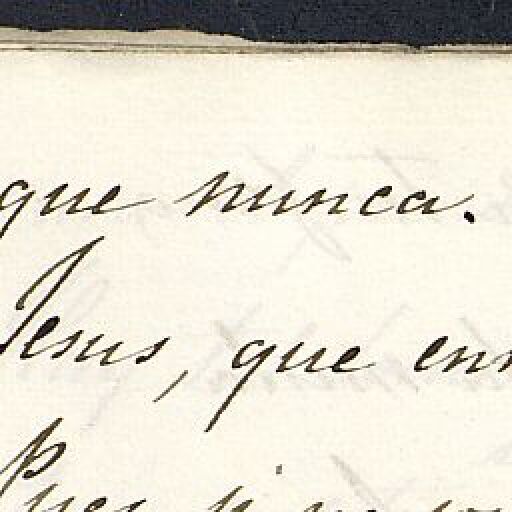 que nunca.
Jesus, que enn
Pues si